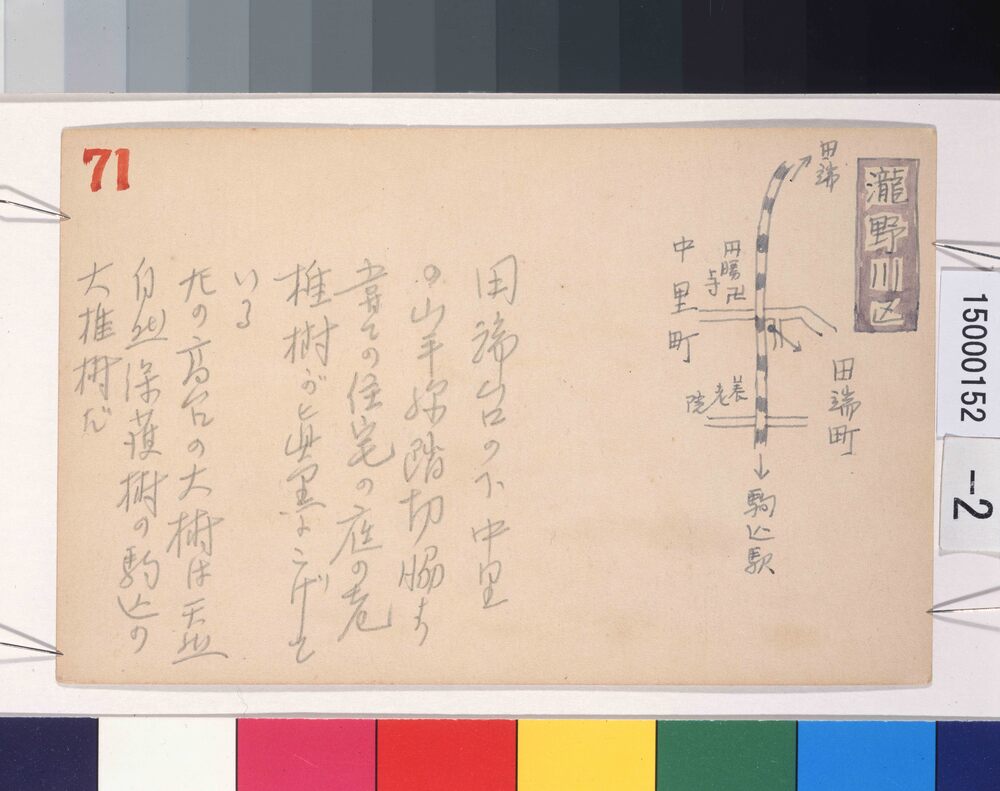 瀧野川区
田端
田端町
円勝寺卍
中里町
養老院
駒込駅
田端台の下中里
の山手線踏切脇
の住宅の庭の老
椎樹が真黒
いる
左の高台の大樹は天然
自然保護樹の駒込の
大椎樹だ
71
15000152
-2